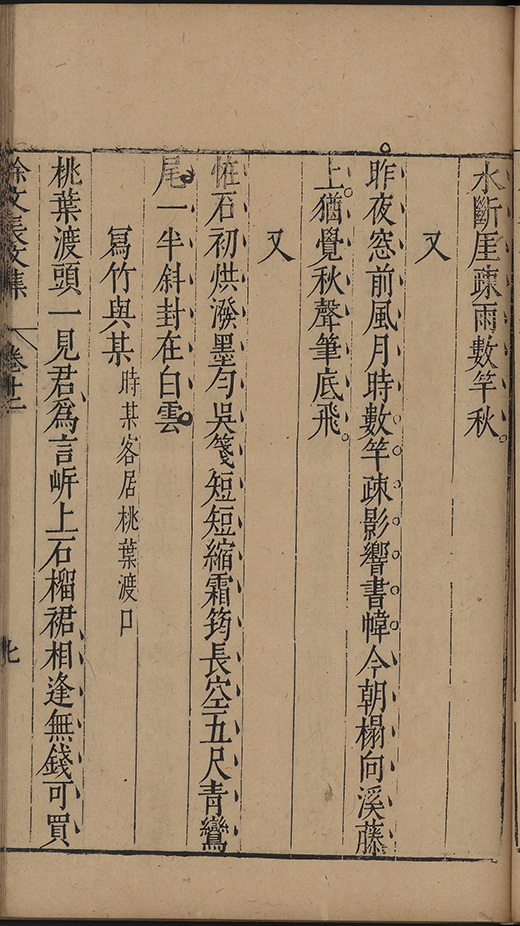 水斷厓疎雨數竿秋
又
昨夜窓前風月時數竿疎影響書幃今朝榻向溪藤
上猶覺秋聲筆底飛
又
怪石初烘潑墨勻吳箋短短縮霜筠長空五尺青鸞
尾一半斜封在白雲
寫竹與某時某客居桃葉渡口
桃葉渡頭一見君爲言㟁上石榴裙相逢無錢可買
徐文長文集 卷十二 七